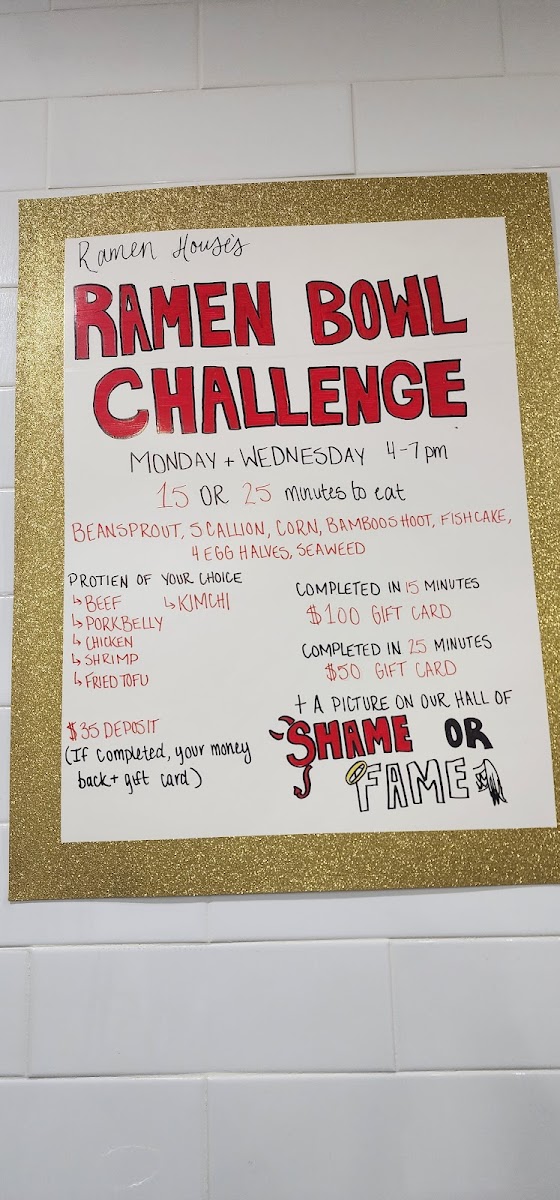 Ramen House's
RAMEN BOWL
CHALLENGE
MONDAY + WEDNESDAY 4-7 pm
15 OR 25 minutes to eat
BEANSPROUT, SCALLION, CORN, BAMBOO SHOOT, FISHCAKE,
4 EGG HALVES, SEAWEED
PROTIEN OF YOUR CHOICE
↳ BEEF ↳ KIMCHI
↳ PORKBELLY
↳ CHICKEN
↳ SHRIMP
↳ FRIED TOFU
$35 DEPOSIT
(If completed, your money
back + gift card)
COMPLETED IN 15 MINUTES
$100 GIFT CARD
COMPLETED IN 25 MINUTES
$50 GIFT CARD
+ A PICTURE ON OUR HALL OF
SHAME OR
FAME